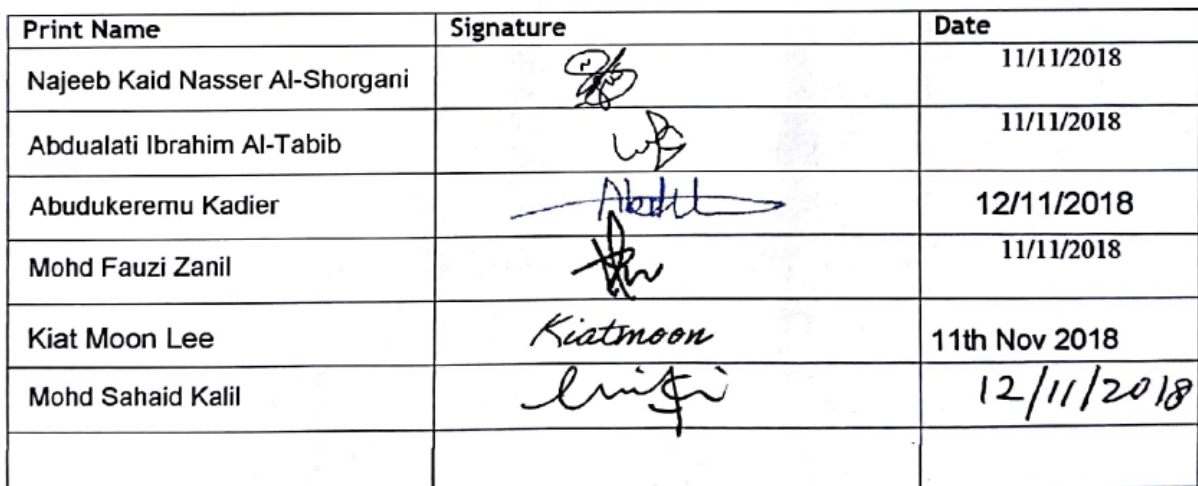 Print Name Signature Date
Najeeb Kaid Nasser Al-Shorgani 11/11/2018
Abdualati Ibrahim Al-Tabib 11/11/2018
Abudukeremu Kadier 12/11/2018
Mohd Fauzi Zanil 11/11/2018
Kiat Moon Lee Kiatmoon 11th Nov 2018
Mohd Sahaid Kalil 12/11/2018